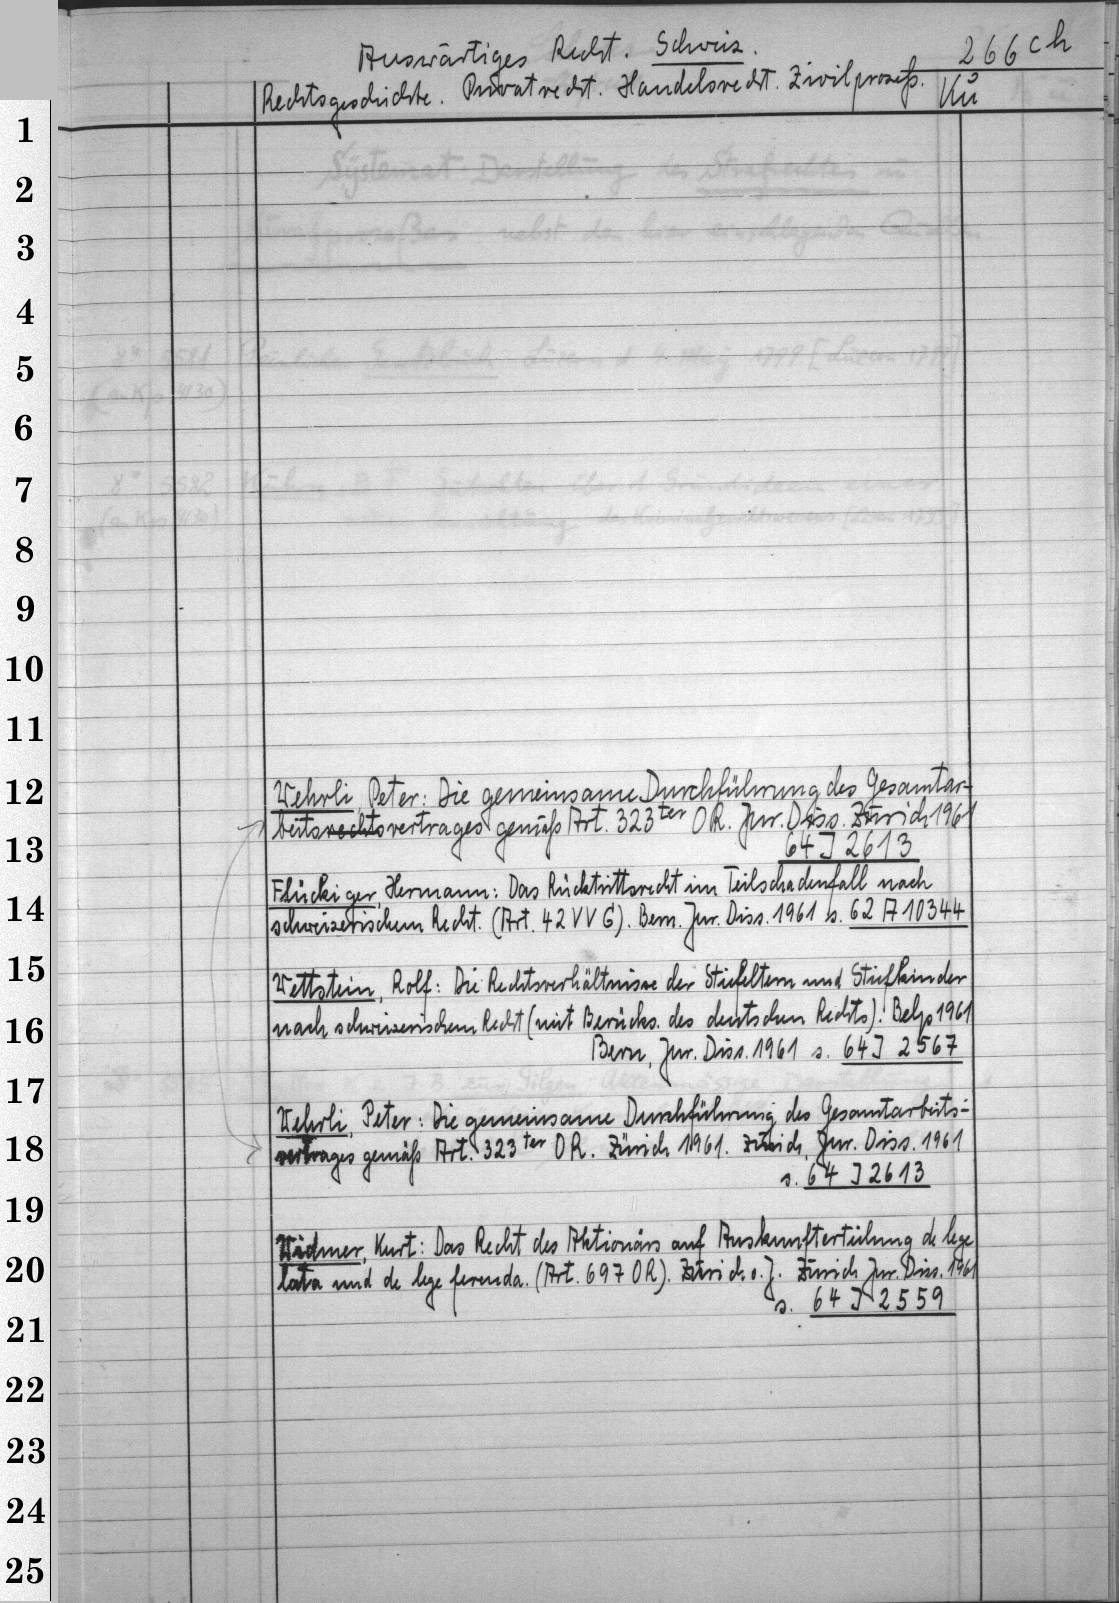 Auswärtiges Recht. Schweiz.
266 ch
Rechtsgeschichte. Privatrecht. Handelsrecht. Zivilprozeß.
Kü
1
2
3
4
5
6
7
8
9
10
11
12
Wehrli, Peter: Die gemeinsame Durchführung des Gesamtar-
beitsrechtsvertrages gemäß Art. 323ter OR. Jur. Diss. Zürich 1961
13
64 J 2613
Flückiger, Hermann: Das Rücktrittsrecht im Teilschadenfall nach
14
schweizerischem Recht. (Art. 42 VVG). Bern. Jur. Diss. 1961 s. 62 A 10344
15
Wettstein, Rolf: Die Rechtsverhältnisse der Stiefeltern und Stiefkinder
16
nach schweizerischem Recht (mit Berücks. des deutschen Rechts). Belp 1961
Bern, Jur. Diss. 1961 s. 64 J 2567
17
Wehrli, Peter: Die gemeinsame Durchführung des Gesamtarbeits-
18
vertrages gemäß Art. 323ter OR. Zürich 1961. Zürich, Jur. Diss. 1961
s. 64 J 2613
19
Widmer, Kurt: Das Recht des Aktionärs auf Auskunfterteilung de lege
20
lata und de lege ferenda. (Art. 697 OR). Zürich o. J. Zürich Jur. Diss. 1961
s. 64 J 2559
21
22
23
24
25